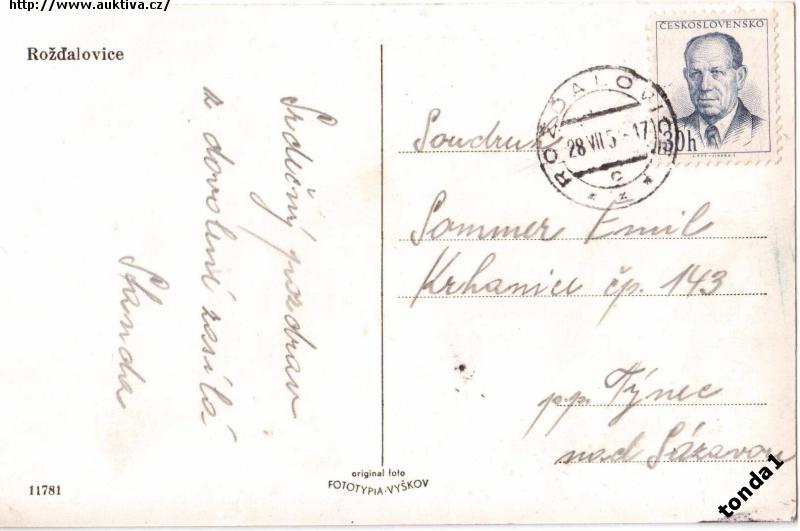 http://www.auktiva.cz/
Rožďalovice
Srdečný pozdrav
z dovolené zasílá
Standa
ČESKOSLOVENSKO
30h
ROŽĎALOVICE
28 VII 5 -17
c
Soudruh
Sommer Emil
Krhanice čp. 143
p.p. Týnec
nad Sázavou
11781
original foto
FOTOTYPIA-VYŠKOV
tonda1